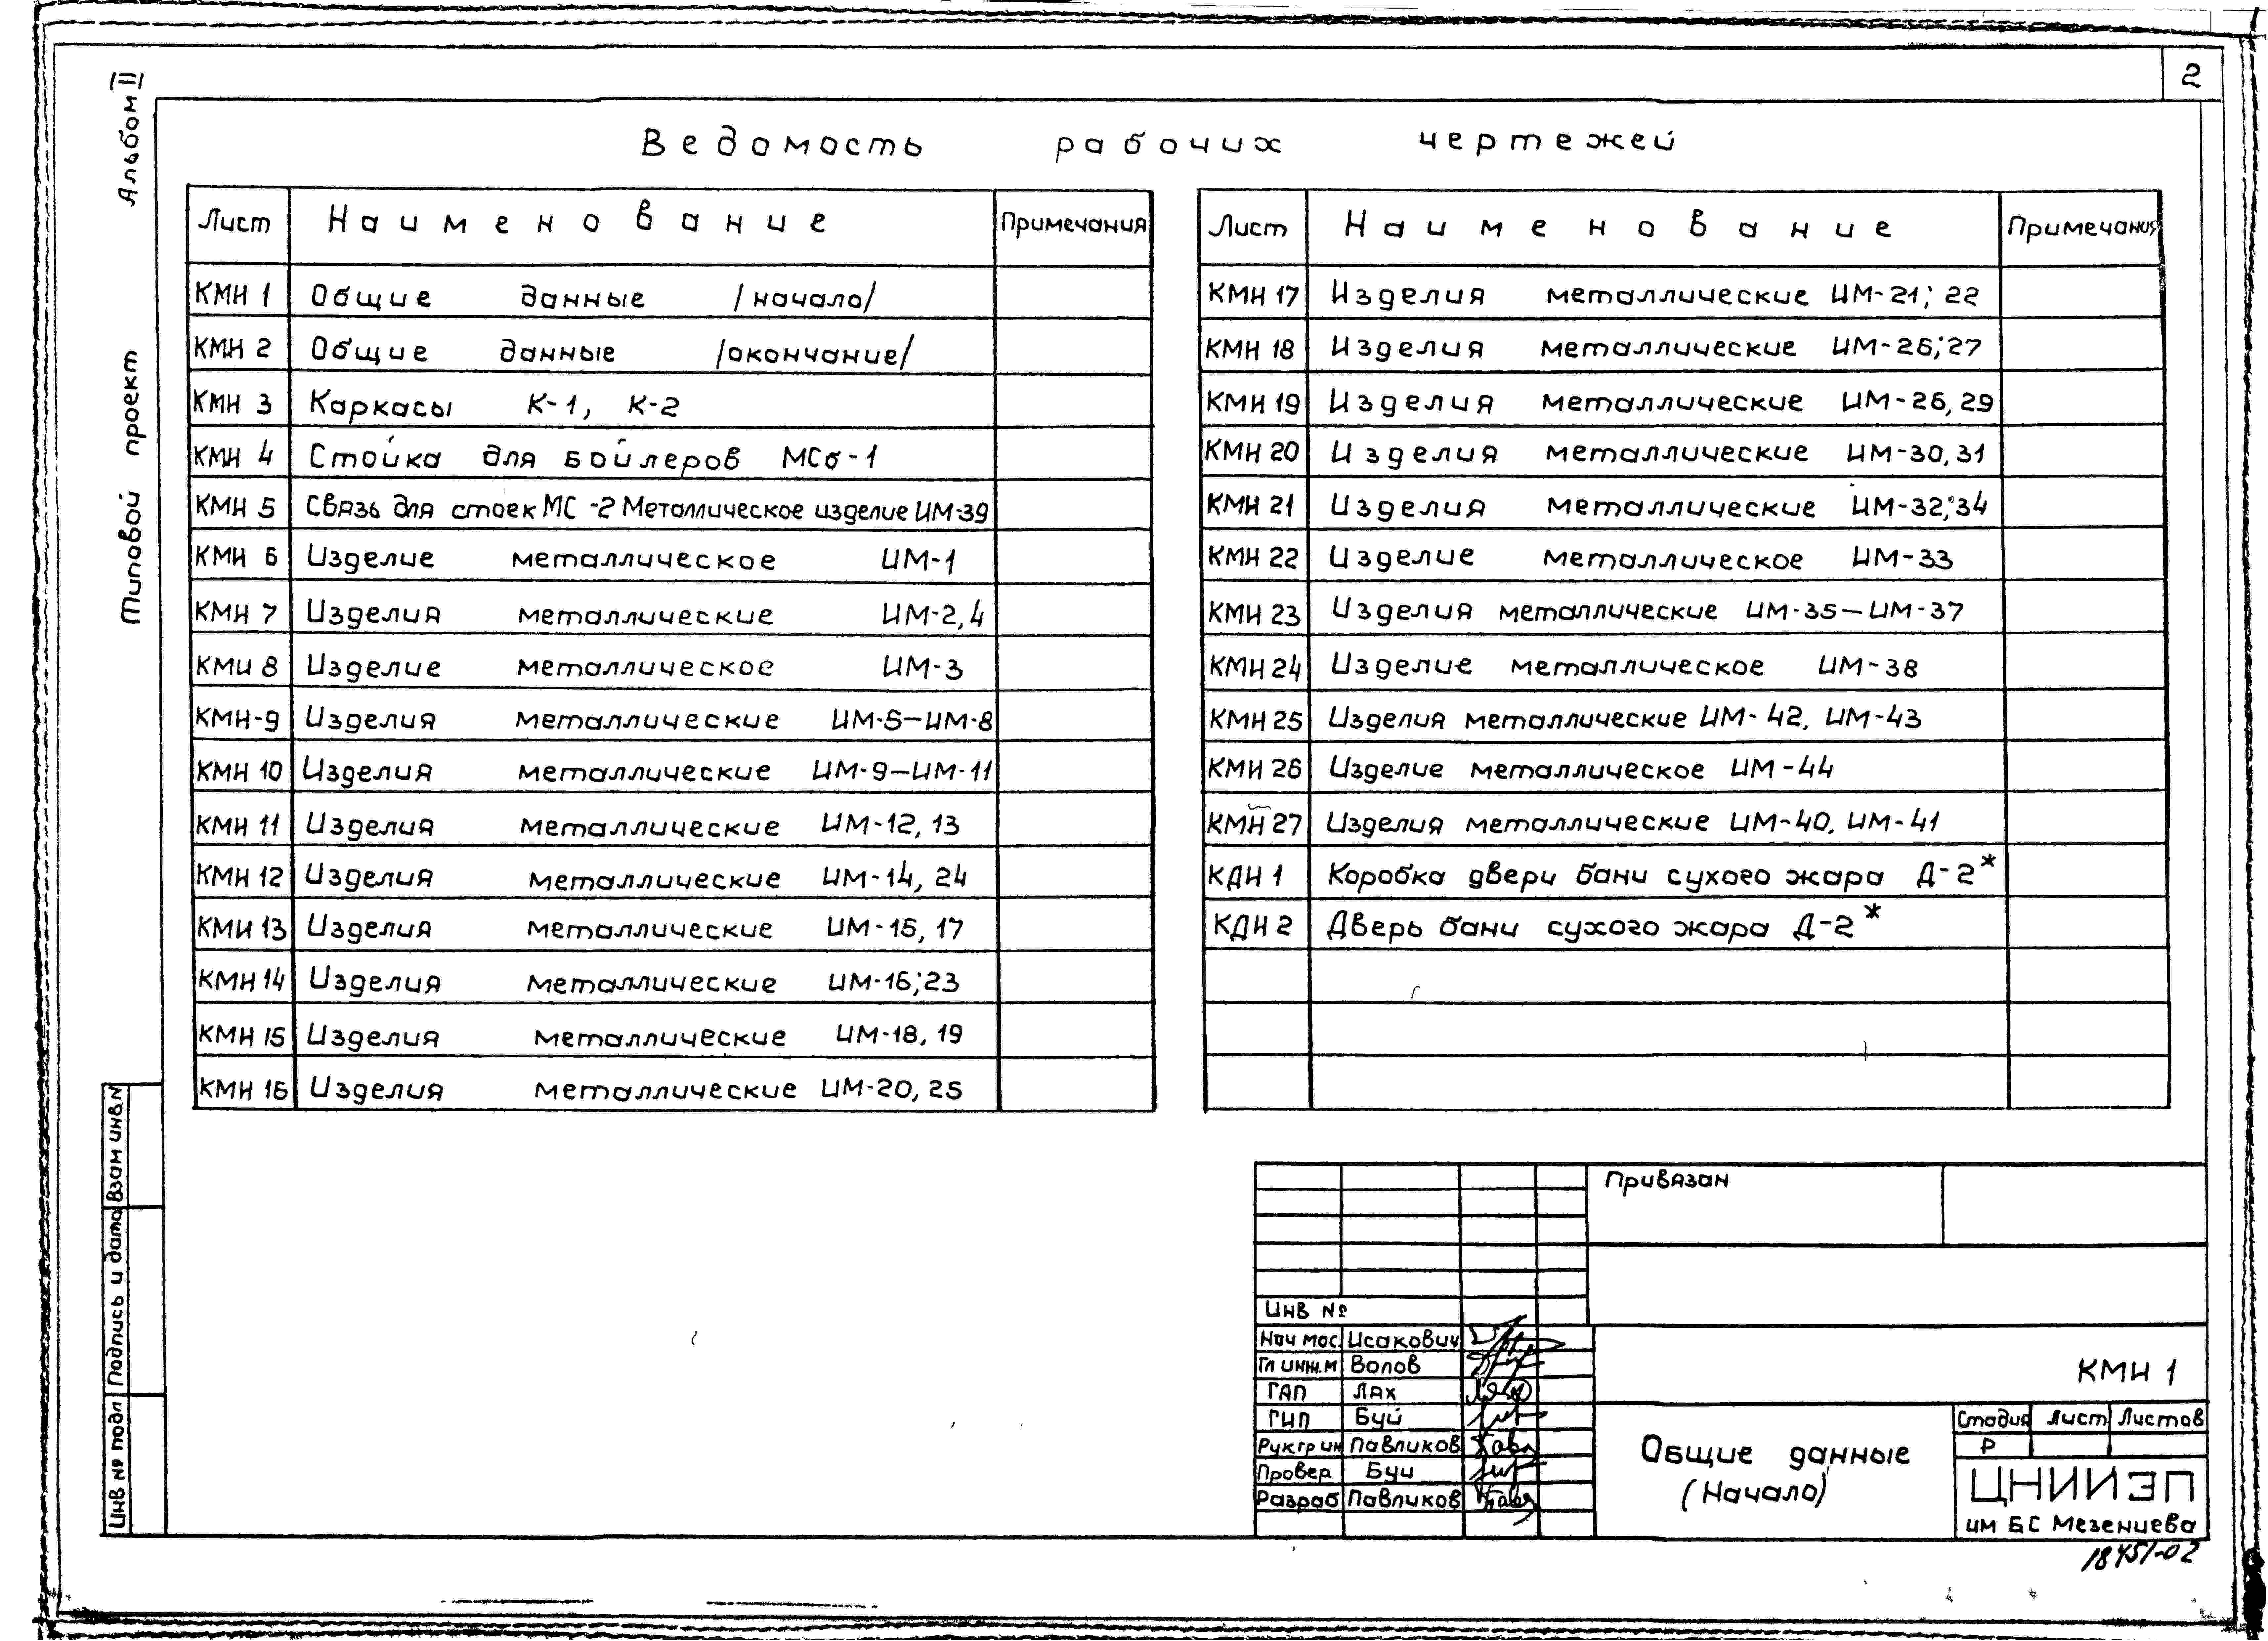 2
Альбом II
Типовой проект
Ведомость рабочих чертежей
Лист Наименование Примечания
КМН 1 Общие данные /начало/
КМН 2 Общие данные /окончание/
КМН 3 Каркасы К-1, К-2
КМН 4 Стойка для бойлеров МСб-1
КМН 5 Связь для стоек МС-2 Металлическое изделие ИМ-39
КМН 6 Изделие металлическое ИМ-1
КМН 7 Изделия металлические ИМ-2,4
КМН 8 Изделие металлическое ИМ-3
КМН-9 Изделия металлические ИМ-5—ИМ-8
КМН 10 Изделия металлические ИМ-9—ИМ-11
КМН 11 Изделия металлические ИМ-12, 13
КМН 12 Изделия металлические ИМ-14, 24
КМН 13 Изделия металлические ИМ-15, 17
КМН 14 Изделия металлические ИМ-16;23
КМН 15 Изделия металлические ИМ-18, 19
КМН 16 Изделия металлические ИМ-20, 25
Лист Наименование Примечания
КМН 17 Изделия металлические ИМ-21; 22
КМН 18 Изделия металлические ИМ-26;27
КМН 19 Изделия металлические ИМ-26,29
КМН 20 Изделия металлические ИМ-30,31
КМН 21 Изделия металлические ИМ-32;34
КМН 22 Изделие металлическое ИМ-33
КМН 23 Изделия металлические ИМ-35—ИМ-37
КМН 24 Изделие металлическое ИМ-38
КМН 25 Изделия металлические ИМ-42, ИМ-43
КМН 26 Изделие металлическое ИМ-44
КМН 27 Изделия металлические ИМ-40, ИМ-41
КДН 1 Коробка двери бани сухого жара Д-2*
КДН 2 Дверь бани сухого жара Д-2*
Взам инв N
Подпись и дата
Инв № подл
Привязан
Инв №
Нач мас. Исакович
Гл инж.м Волов
ГАП Лах
ГИП Буй
Рук гр ин Павликов
Провер Буи
Разраб Павликов
КМН 1
Общие данные
(Начало)
Стадия Лист Листов
Р
ЦНИИЭП
им БС Мезенцева
18451-02